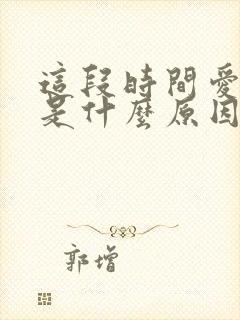 這段時間愛
是什麼原因
郭增